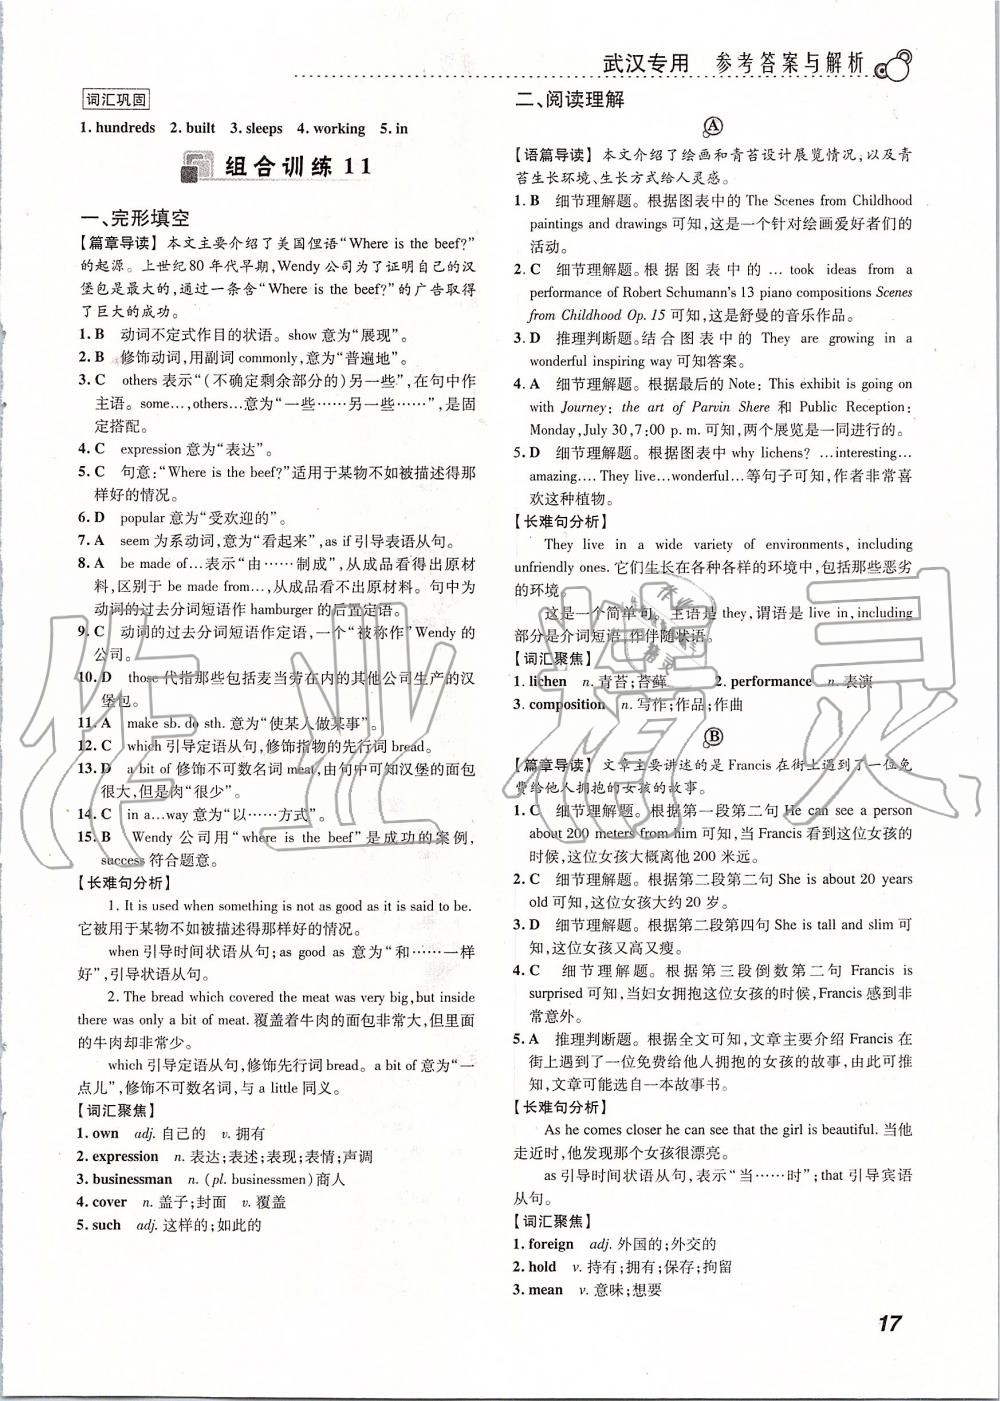 武汉专用 参考答案与解析
词汇巩固
1. hundreds 2. built 3. sleeps 4. working 5. in
组合训练 11
一、完形填空
【篇章导读】本文主要介绍了美国俚语“Where is the beef?”
的起源。上世纪 80 年代早期,Wendy 公司为了证明自己的汉
堡包是最大的,通过一条含“Where is the beef?”的广告取得
了巨大的成功。
1. B 动词不定式作目的状语。show 意为“展现”。
2. B 修饰动词,用副词 commonly,意为“普遍地”。
3. C others 表示“(不确定剩余部分的)另一些”,在句中作
主语。some…,others…意为“一些……另一些……”,是固
定搭配。
4. C expression 意为“表达”。
5. C 句意:“Where is the beef?”适用于某物不如被描述得那
样好的情况。
6. D popular 意为“受欢迎的”。
7. A seem 为系动词,意为“看起来”,as if 引导表语从句。
8. A be made of…表示“由……制成”,从成品看得出原材
料,区别于 be made from…,从成品看不出原材料。句中为
动词的过去分词短语作 hamburger 的后置定语。
9. C 动词的过去分词短语作定语,一个“被称作”Wendy 的
公司。
10. D those 代指那些包括麦当劳在内的其他公司生产的汉
堡包。
11. A make sb. do sth. 意为“使某人做某事”。
12. C which 引导定语从句,修饰指物的先行词 bread。
13. D a bit of 修饰不可数名词 meat,由句中可知汉堡的面包
很大,但是肉“很少”。
14. C in a…way 意为“以……方式”。
15. B Wendy 公司用“where is the beef”是成功的案例,
success 符合题意。
【长难句分析】
1. It is used when something is not as good as it is said to be.
它被用于某物不如被描述得那样好的情况。
when 引导时间状语从句;as good as 意为“和……一样
好”,引导状语从句。
2. The bread which covered the meat was very big,but inside
there was only a bit of meat. 覆盖着牛肉的面包非常大,但里面
的牛肉却非常少。
which 引导定语从句,修饰先行词 bread。a bit of 意为“一
点儿”,修饰不可数名词,与 a little 同义。
【词汇聚焦】
1. own adj. 自己的 v. 拥有
2. expression n. 表达;表述;表现;表情;声调
3. businessman n. (pl. businessmen)商人
4. cover n. 盖子;封面 v. 覆盖
5. such adj. 这样的;如此的
二、阅读理解
A
【语篇导读】本文介绍了绘画和青苔设计展览情况,以及青
苔生长环境、生长方式给人灵感。
1. B 细节理解题。根据图表中的 The Scenes from Childhood
paintings and drawings 可知,这是一个针对绘画爱好者们的
活动。
2. C 细节理解题。根据图表中的 … took ideas from a
performance of Robert Schumann's 13 piano compositions Scenes
from Childhood Op. 15 可知,这是舒曼的音乐作品。
3. D 推理判断题。结合图表中的 They are growing in a
wonderful inspiring way 可知答案。
4. A 细节理解题。根据最后的 Note: This exhibit is going on
with Journey: the art of Parvin Shere 和 Public Reception:
Monday,July 30,7:00 p. m. 可知,两个展览是一同进行的。
5. D 细节理解题。根据图表中 why lichens? …interesting…
amazing.… They live…wonderful…等句子可知,作者非常喜
欢这种植物。
【长难句分析】
They live in a wide variety of environments, including
unfriendly ones. 它们生长在各种各样的环境中,包括那些恶劣
的环境。
这是一个简单句。主语是 they,谓语是 live in,including
部分是介词短语,作伴随状语。
【词汇聚焦】
1. lichen n. 青苔;苔藓 2. performance n. 表演
3. composition n. 写作;作品;作曲
B
【篇章导读】文章主要讲述的是 Francis 在街上遇到了一位免
费给他人拥抱的女孩的故事。
1. C 细节理解题。根据第一段第二句 He can see a person
about 200 meters from him 可知,当 Francis 看到这位女孩的
时候,这位女孩大概离他 200 米远。
2. C 细节理解题。根据第二段第二句 She is about 20 years
old 可知,这位女孩大约 20 岁。
3. D 细节理解题。根据第二段第四句 She is tall and slim 可
知,这位女孩又高又瘦。
4. C 细节理解题。根据第三段倒数第二句 Francis is
surprised 可知,当妇女拥抱这位女孩的时候,Francis 感到非
常意外。
5. A 推理判断题。根据全文可知,文章主要介绍了 Francis 在
街上遇到了一位免费给他人拥抱的女孩的故事,由此可推
知,文章可能选自一本故事书。
【长难句分析】
As he comes closer he can see that the girl is beautiful. 当他
走近时,他发现那个女孩很漂亮。
as 引导时间状语从句,表示“当……时”;that 引导宾语
从句。
【词汇聚焦】
1. foreign adj. 外国的;外交的
2. hold v. 持有;拥有;保存;拘留
3. mean v. 意味;想要
17
作业精灵